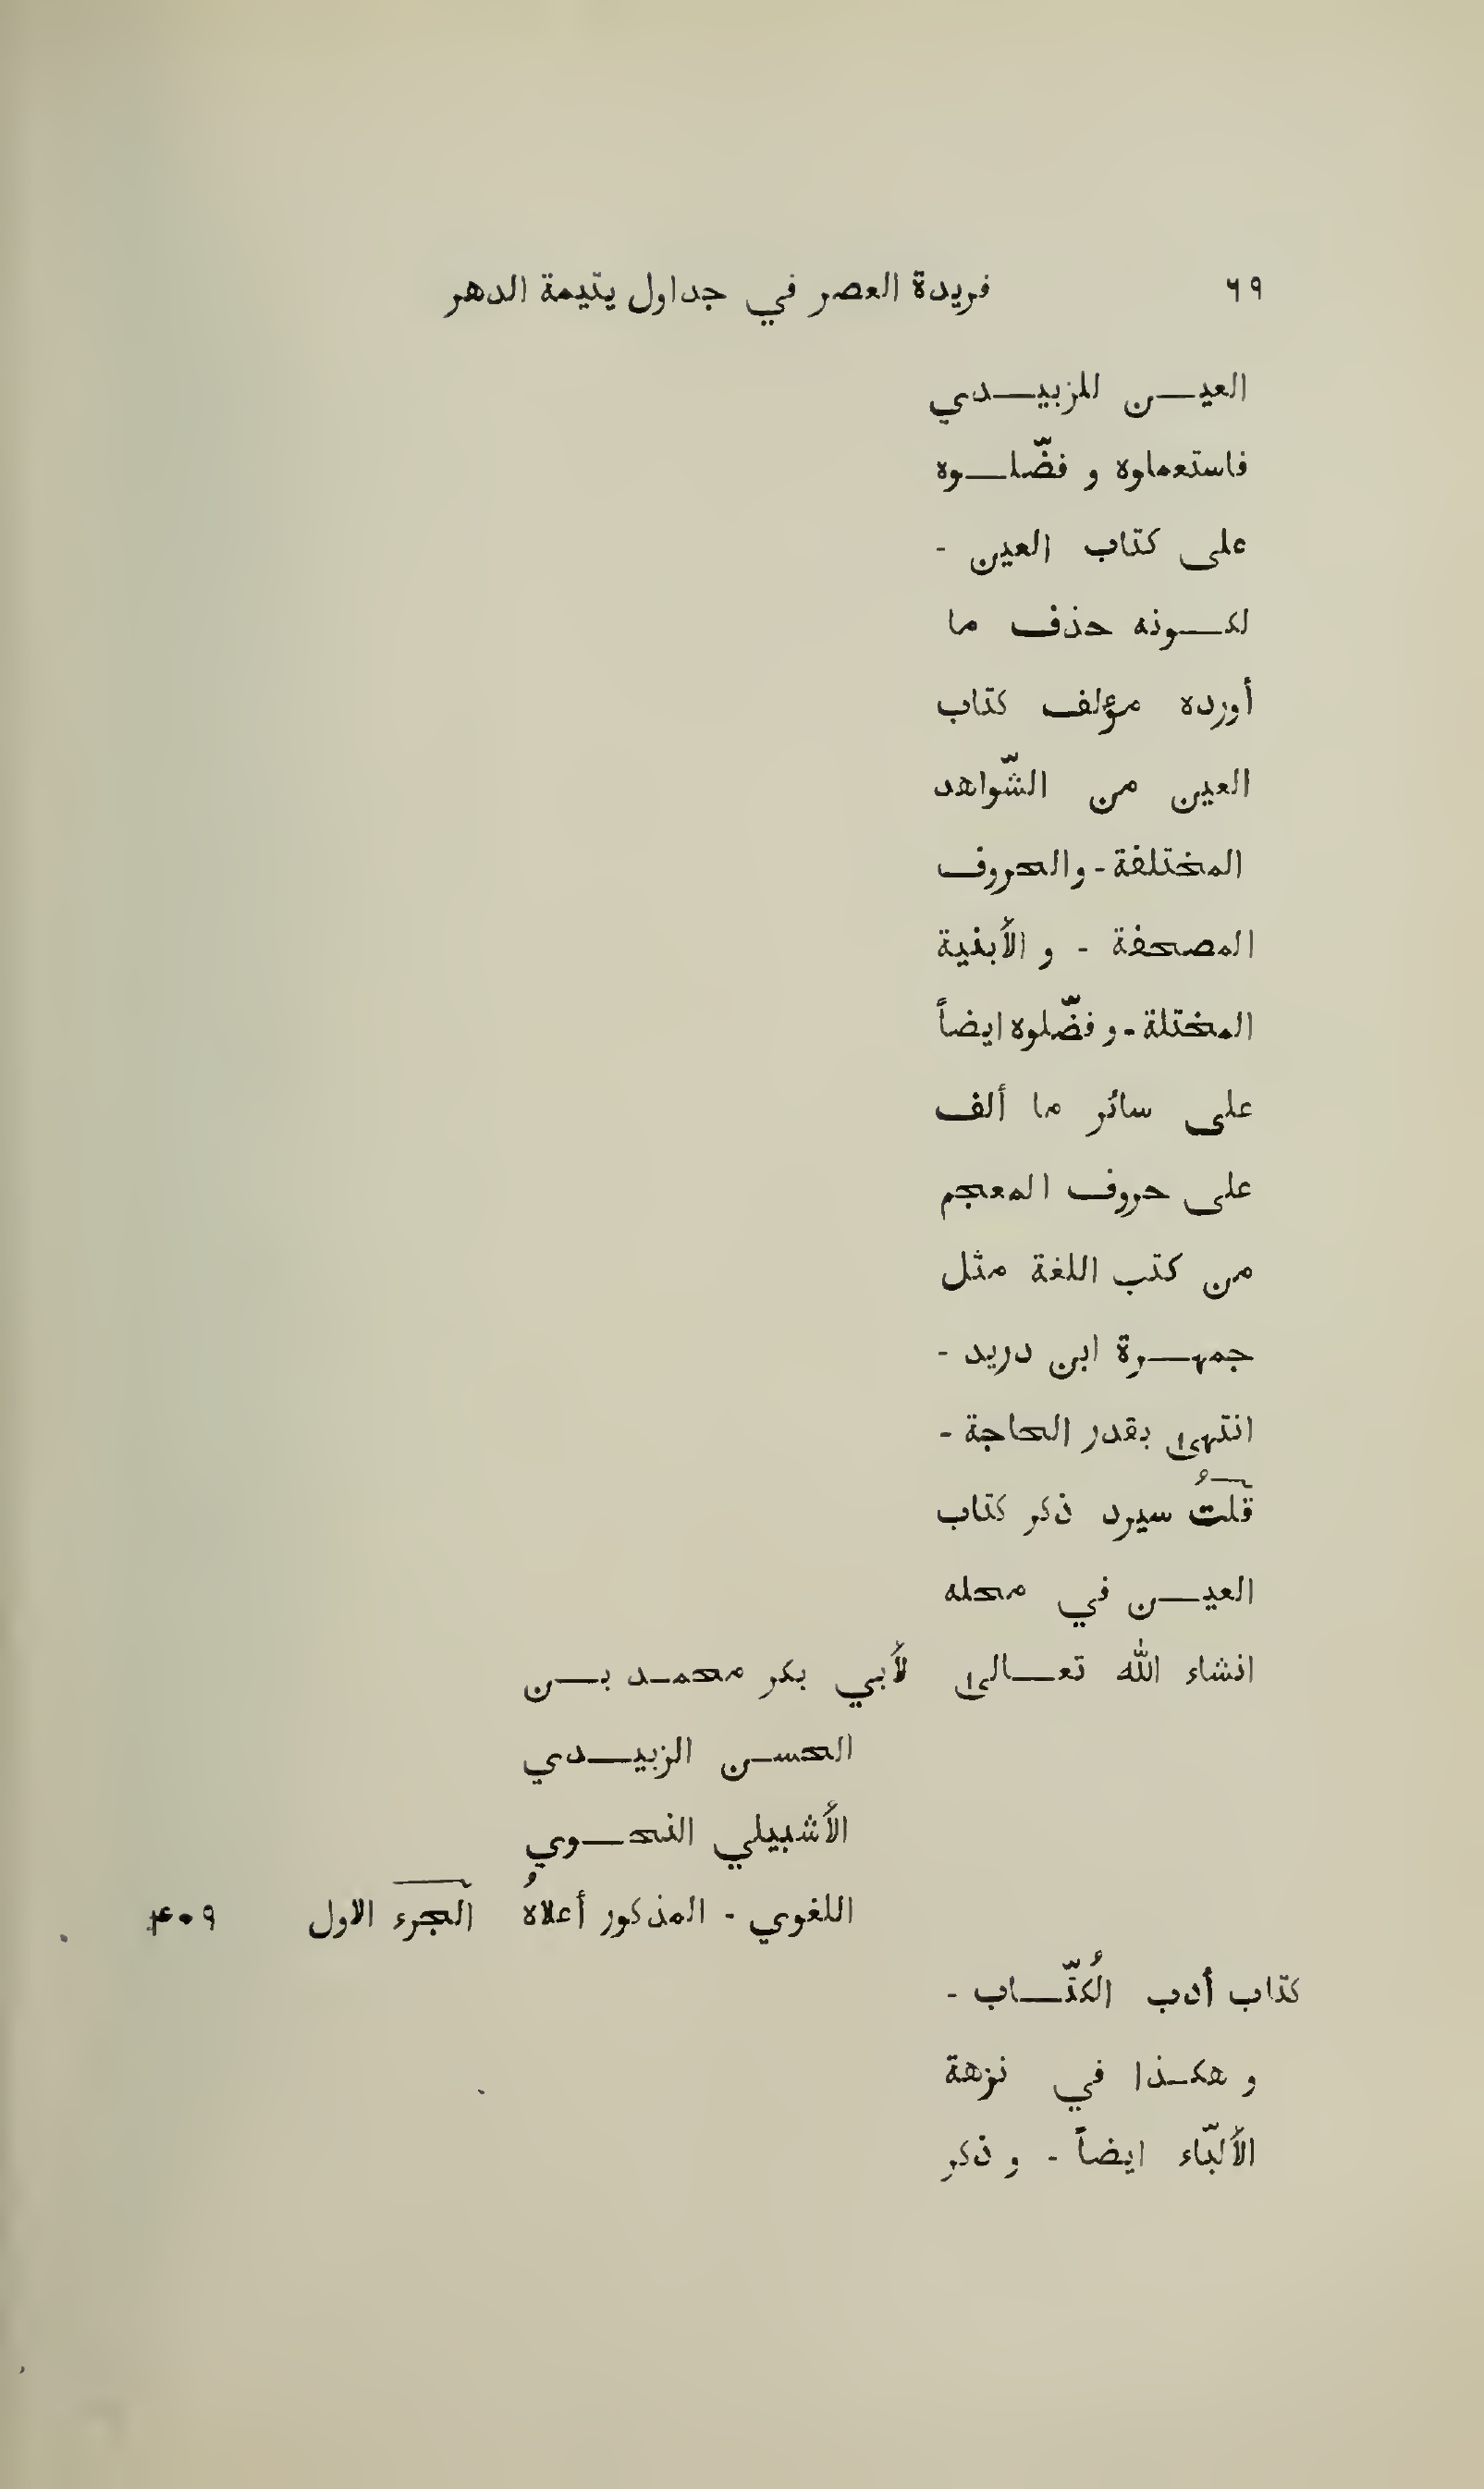 ٦٩ فريدة العصر في جداول يتيمة الدهر
العيـــن للزبيـــدي
فاستعملوه و فضّلـــوه
على كتاب العين -
لكـــونه حذف ما
أورده مؤلف كتاب
العين من الشّواهد
المختلفة - والحروف
المصحفة - و الأبنية
المختلة - و فضّلوه ايضاً
على سائر ما ألف
على حروف المعجم
من كتب اللغة مثل
جمهـــرة ابن دريد -
انتهىٰ بقدر الحاجة -
قلتُ سيرد ذكر كتاب
العيـــن في محله
انشاء الله تعـــالىٰ لأبي بكر محمـد بـــن
الحســن الزبيـــدي
الأشبيلي النحـــوي
اللغوي - المذكور أعلاهُ الجزء الاول ۴۰۹
كتاب أدب الكُتّـــاب -
و هكـذا في نزهة
الألبّاء ايضاً - و ذكر